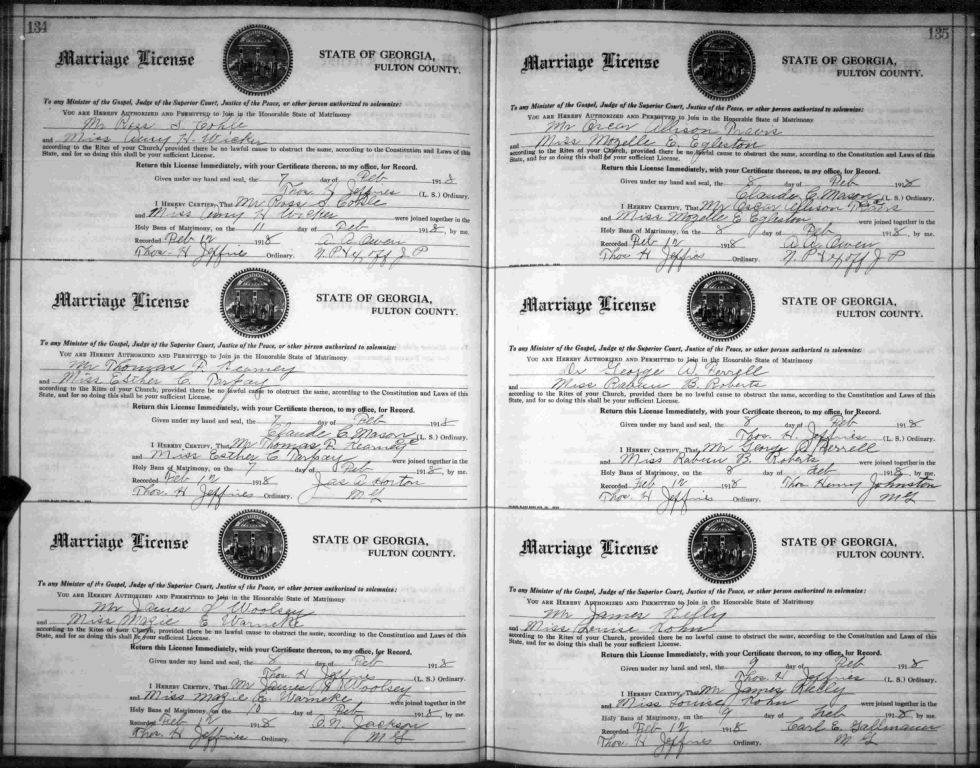 134
Marriage License
STATE OF GEORGIA,
FULTON COUNTY.
To any Minister of the Gospel, Judge of the Superior Court, Justice of the Peace, or other person authorized to solemnize:
YOU ARE HEREBY AUTHORIZED AND PERMITTED to Join in the Honorable State of Matrimony
Mr Ross S.
and Miss H. Wicker
according to the Rites of your Church, provided there be no lawful cause to obstruct the same, according to the Constitution and Laws of this
State, and for so doing this shall be your sufficient License.
Return this License Immediately, with your Certificate thereon, to my office, for Record.
Given under my hand and seal, the 7 day of Feb 1918
Thos. H Jeffries (L. S.) Ordinary.
I HEREBY CERTIFY, That Mr Ross S.
and Miss H Wicker were joined together in the
Holy Bans of Matrimony, on the 11 day of Feb 1918, by me.
Recorded Feb 12 1918 Owen
Thos. H Jeffries Ordinary. N. P & Ex off J P
Marriage License
STATE OF GEORGIA,
FULTON COUNTY.
To any Minister of the Gospel, Judge of the Superior Court, Justice of the Peace, or other person authorized to solemnize:
YOU ARE HEREBY AUTHORIZED AND PERMITTED to Join in the Honorable State of Matrimony
Mr Thomas P. Kearney
and Miss Esther C.
according to the Rites of your Church, provided there be no lawful cause to obstruct the same, according to the Constitution and Laws of this
State, and for so doing this shall be your sufficient License.
Return this License Immediately, with your Certificate thereon, to my office, for Record.
Given under my hand and seal, the 7 day of Feb 1918
Claude C. Mason (L. S.) Ordinary.
I HEREBY CERTIFY, That Mr Thomas P. Kearney
and Miss Esther C were joined together in the
Holy Bans of Matrimony, on the 7 day of Feb 1918, by me.
Recorded Feb 12 1918 Jas A Horton
Thos. H Jeffries Ordinary. M G
Marriage License
STATE OF GEORGIA,
FULTON COUNTY.
To any Minister of the Gospel, Judge of the Superior Court, Justice of the Peace, or other person authorized to solemnize:
YOU ARE HEREBY AUTHORIZED AND PERMITTED to Join in the Honorable State of Matrimony
Mr James Woolsey
and Miss Mazie E Warneke
according to the Rites of your Church, provided there be no lawful cause to obstruct the same, according to the Constitution and Laws of this
State, and for so doing this shall be your sufficient License.
Return this License Immediately, with your Certificate thereon, to my office, for Record.
Given under my hand and seal, the 8 day of Feb 1918
Thos H Jeffries (L. S.) Ordinary.
I HEREBY CERTIFY, That Mr James Woolsey
and Miss Mazie E. Warneke were joined together in the
Holy Bans of Matrimony, on the 10 day of Feb 1918, by me.
Recorded Feb 12 1918 Jackson
Thos. H Jeffries Ordinary. M G
135
Marriage License
STATE OF GEORGIA,
FULTON COUNTY.
To any Minister of the Gospel, Judge of the Superior Court, Justice of the Peace, or other person authorized to solemnize:
YOU ARE HEREBY AUTHORIZED AND PERMITTED to Join in the Honorable State of Matrimony
Mr Oscar Allison
and Miss Mozelle E. Egleston
according to the Rites of your Church, provided there be no lawful cause to obstruct the same, according to the Constitution and Laws of this
State, and for so doing this shall be your sufficient License.
Return this License Immediately, with your Certificate thereon, to my office, for Record.
Given under my hand and seal, the 8 day of Feb 1918
Claude C. Mason (L. S.) Ordinary.
I HEREBY CERTIFY, That Mr Oscar Allison
and Miss Mozelle E Egleston were joined together in the
Holy Bans of Matrimony, on the 8 day of Feb 1918, by me.
Recorded Feb 12 1918 Owen
Thos. H Jeffries Ordinary. N. P & Ex off J P
Marriage License
STATE OF GEORGIA,
FULTON COUNTY.
To any Minister of the Gospel, Judge of the Superior Court, Justice of the Peace, or other person authorized to solemnize:
YOU ARE HEREBY AUTHORIZED AND PERMITTED to Join in the Honorable State of Matrimony
Dr George W. Ferrell
and Miss Rabun B. Roberts
according to the Rites of your Church, provided there be no lawful cause to obstruct the same, according to the Constitution and Laws of this
State, and for so doing this shall be your sufficient License.
Return this License Immediately, with your Certificate thereon, to my office, for Record.
Given under my hand and seal, the 8 day of Feb 1918
Thos. H. Jeffries (L. S.) Ordinary.
I HEREBY CERTIFY, That Mr George
and Miss Rabun B. Roberts were joined together in the
Holy Bans of Matrimony, on the 8 day of Feb 1918, by me.
Recorded Feb 12 1918 Thos Henry Johnston
Thos. H Jeffries Ordinary. M G
Marriage License
STATE OF GEORGIA,
FULTON COUNTY.
To any Minister of the Gospel, Judge of the Superior Court, Justice of the Peace, or other person authorized to solemnize:
YOU ARE HEREBY AUTHORIZED AND PERMITTED to Join in the Honorable State of Matrimony
Mr James Kelly
and Miss Louise Kohn
according to the Rites of your Church, provided there be no lawful cause to obstruct the same, according to the Constitution and Laws of this
State, and for so doing this shall be your sufficient License.
Return this License Immediately, with your Certificate thereon, to my office, for Record.
Given under my hand and seal, the 9 day of Feb 1918
Thos H Jeffries (L. S.) Ordinary.
I HEREBY CERTIFY, That Mr James Kelly
and Miss Louise Kohn were joined together in the
Holy Bans of Matrimony, on the 9 day of Feb 1918, by me.
Recorded Feb 12 1918 Carl E.
Thos. H Jeffries Ordinary. M G